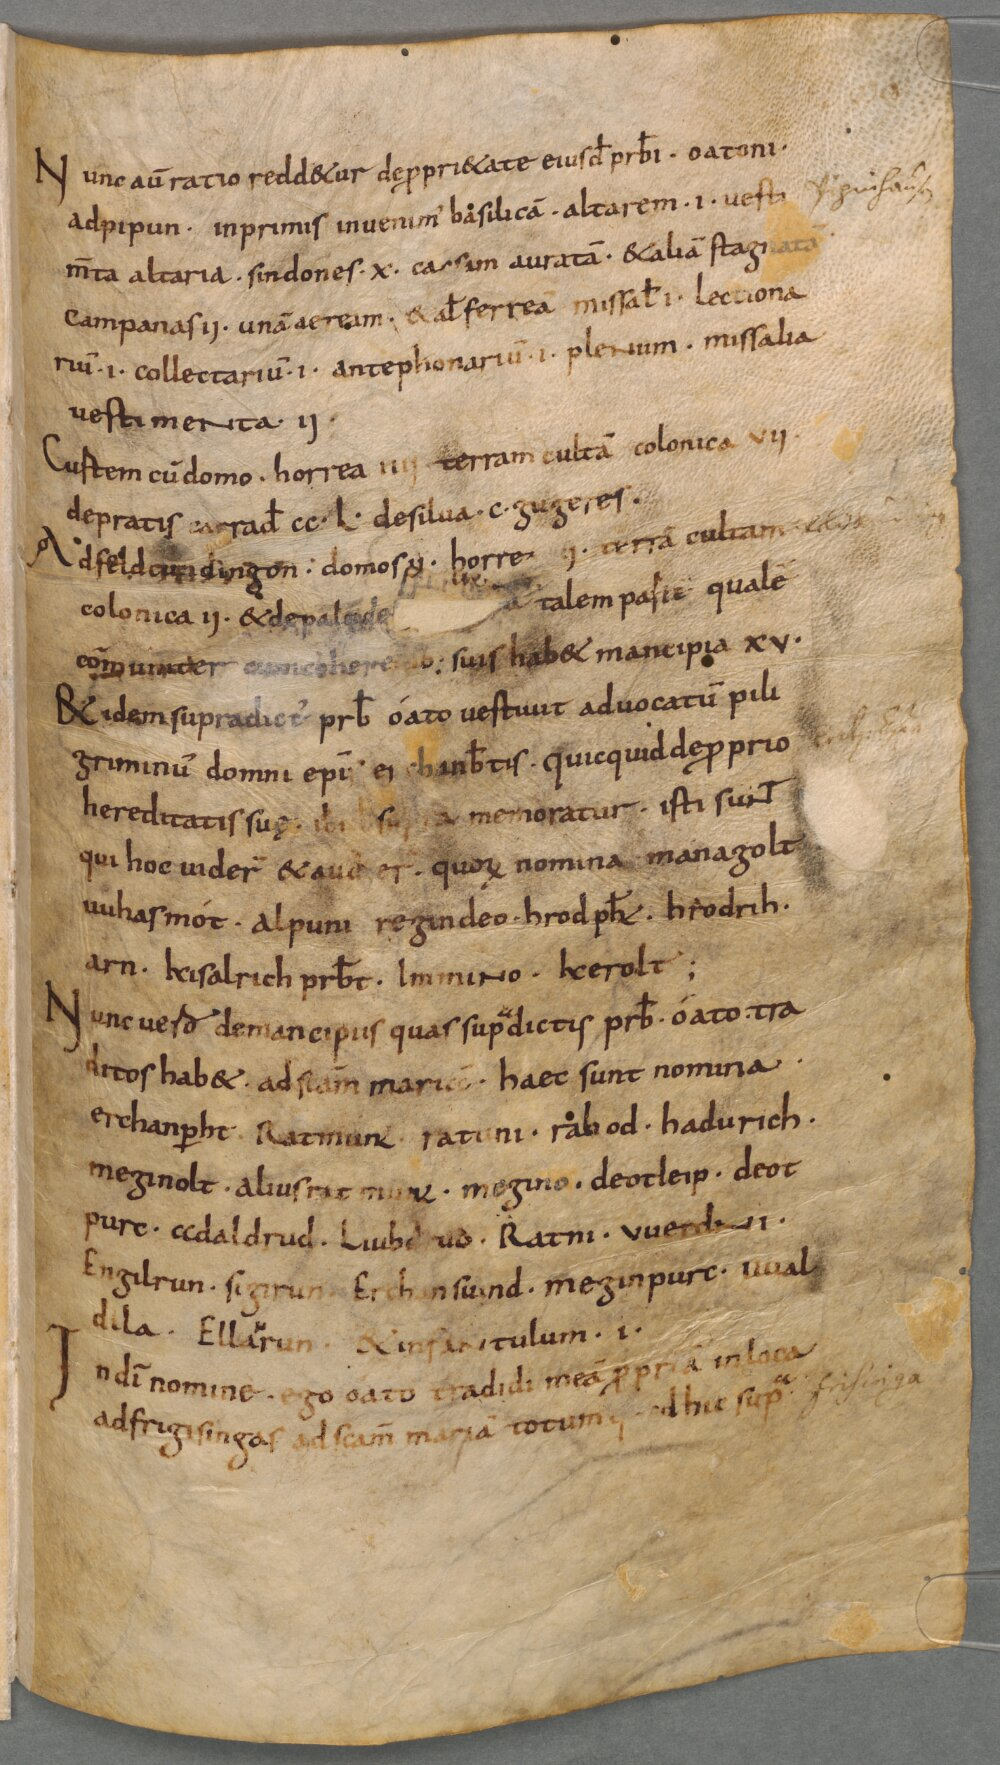 Nunc au̅ ratio redd&ur de ꝓpri&ate eiusđ prƀi · oatoni ·
ad pipun · inprimis inuenim᾽ basilicā · altarem · i · uesti
m̅ta altaria · sindones · x · capsam auratā · & aliā stagnatā
campanas ii · unā aeream · & al̅ ferreā missal̅ i · lectiona
riū · i · collectariū · i · antephonariū · i · plenium · missalia
uestimenta · ii ·
Custem cū domo · horrea iiii terram cultā colonica vii ·
de pratis carrad̅ cc · l · de silua · c · gugeres ·
Ad feld domos ii · horrea ii · terrā cultam
colonica ii · & de talem pasit qualē
cōmuniter suis hab& mancipia xv ·
& idem supradict᾽ prƀ óato uestiuit aduocatū pili
griminū domni epi̅ erchanƀtis · quicquid de ꝓprio
hereditatis suę · ibi supra memoratur · isti sunt
qui hoc uider̅ & audier̅ · quoꝝ nomina managolt
uuhasmót · alpuni regindeo · hrodpħt · hrodrih ·
arn · kisalrich prƀt · Immino · kerolt ;
Nunc uero de mancipiis quas supᵃdictis prƀ · óato · tra
ditos hab& · ad scam̅ mariā · haec sunt nomina ·
erchanꝑht Ratmunt ratuni · råbod · hadurich ·
meginolt · alius ratmunt · megino · deotleip · deot
purc · adaldrud · Liubdrud · Ratni · vuerdni ·
Engilrun · sigirun Erchansuind · meginpurc · uual
dila · Ellanrun · & infantulum · i ·
In di̅ nomine · ego oato tradidi meā ꝓpriā in loca
ad frigisingas ad scam̅ mariā totum adhuc supᵃ
frisinga